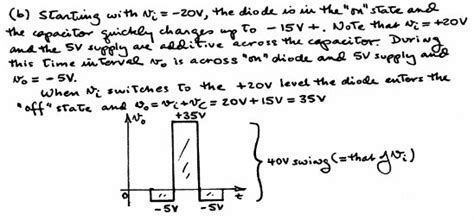 (b) Starting with vi = -20V, the diode is in the "on" state and
the capacitor quickly charges up to -15V +. Note that vi = +20V
and the 5V supply are additive across the capacitor. During
this time interval vo is across "on" diode and 5V supply and
vo = -5V.
When vi switches to the +20V level the diode enters the
"off" state and vo = vi + vc = 20V + 15V = 35V
vo
+35V
40V swing (= that of vi)
0
-5V
-5V
t